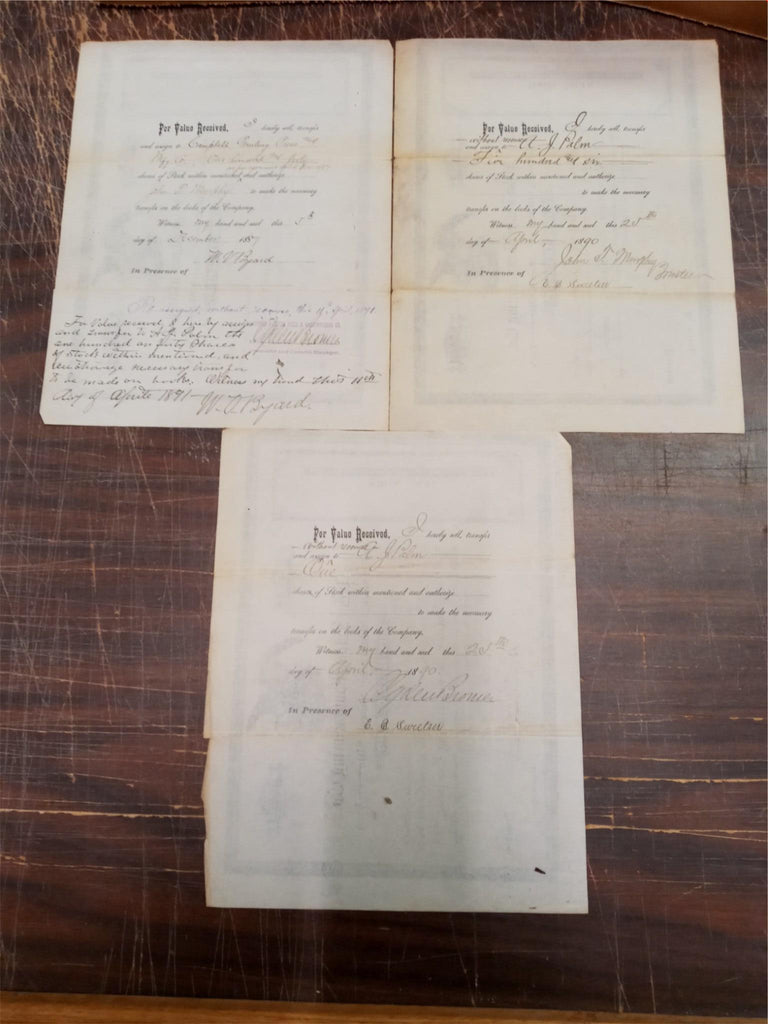 For Value Received, I hereby sell, transfer
and assign to Complete Printing Press and
Mfg Co. One hundred and forty
shares of Stock within mentioned and authorize
John T. Murphy to make the necessary
transfer on the books of the Company.
Witness my hand and seal this 5th
day of December 1887
W. V. Byard
In Presence of
assigned, without recourse, this 11th April, 1891
For Value received, I hereby assign
and transfer to A. J. Palm the
one hundred an forty Shares
of Stock within mentioned, and
authorize necessary transfer
to be made on books, Witness my hand this 11th
day of April 1891
W. V. Byard.
For Value Received, I hereby sell, transfer
without recourse
and assign to A. J. Palm
Five hundred and six
shares of Stock within mentioned and authorize
to make the necessary
transfer on the books of the Company.
Witness my hand and seal this 25th
day of April, 1890
John T. Murphy
Trustee
In Presence of
E. B. Sweetser
For Value Received, I hereby sell, transfer
without recourse
and assign to A. J. Palm
One
shares of Stock within mentioned and authorize
to make the necessary
transfer on the books of the Company.
Witness my hand and seal this 25th
day of April 1890.
In Presence of
E. B. Sweetser